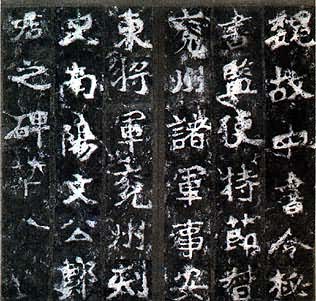 魏故中書令秘
書監使持節督
兗州諸軍事安
東將軍兗州刾
史南陽文公鄭
君之碑